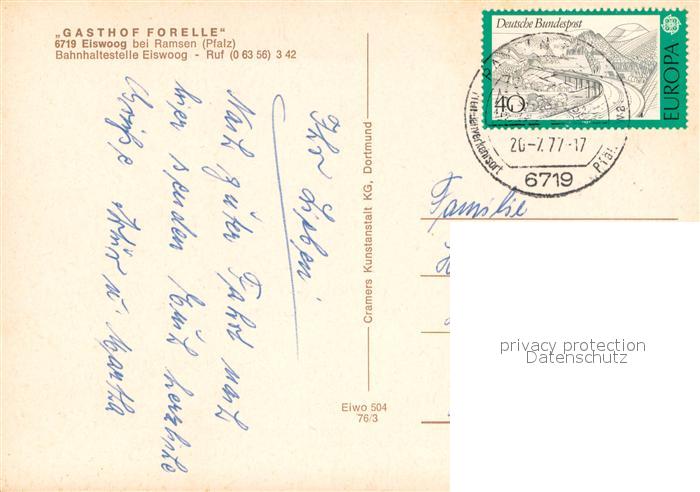 „GASTHOF FORELLE"
6719 Eiswoog bei Ramsen (Pfalz)
Bahnhaltestelle Eiswoog - Ruf (0 63 56) 3 42
Ihr Lieben!
Nach guter Fahrt nach
hier senden Euch herzliche
Grüße
u. Martha
Cramers Kunstanstalt KG, Dortmund
Eiwo 504
76/3
Deutsche Bundespost
40
EUROPA
20-7.77-17
6719
Familie
privacy protection
Datenschutz